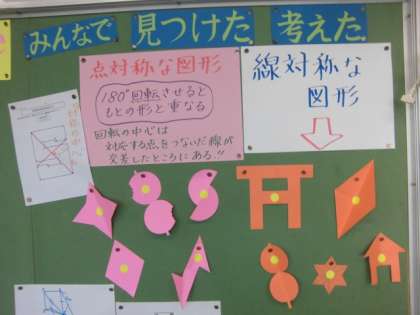 みんなで 見つけた 考えた
点対称な図形
180°回転させると
もとの形と重なる
回転の中心は
対応する点をつないだ線が
交差したところにある!!
線対称な
図形